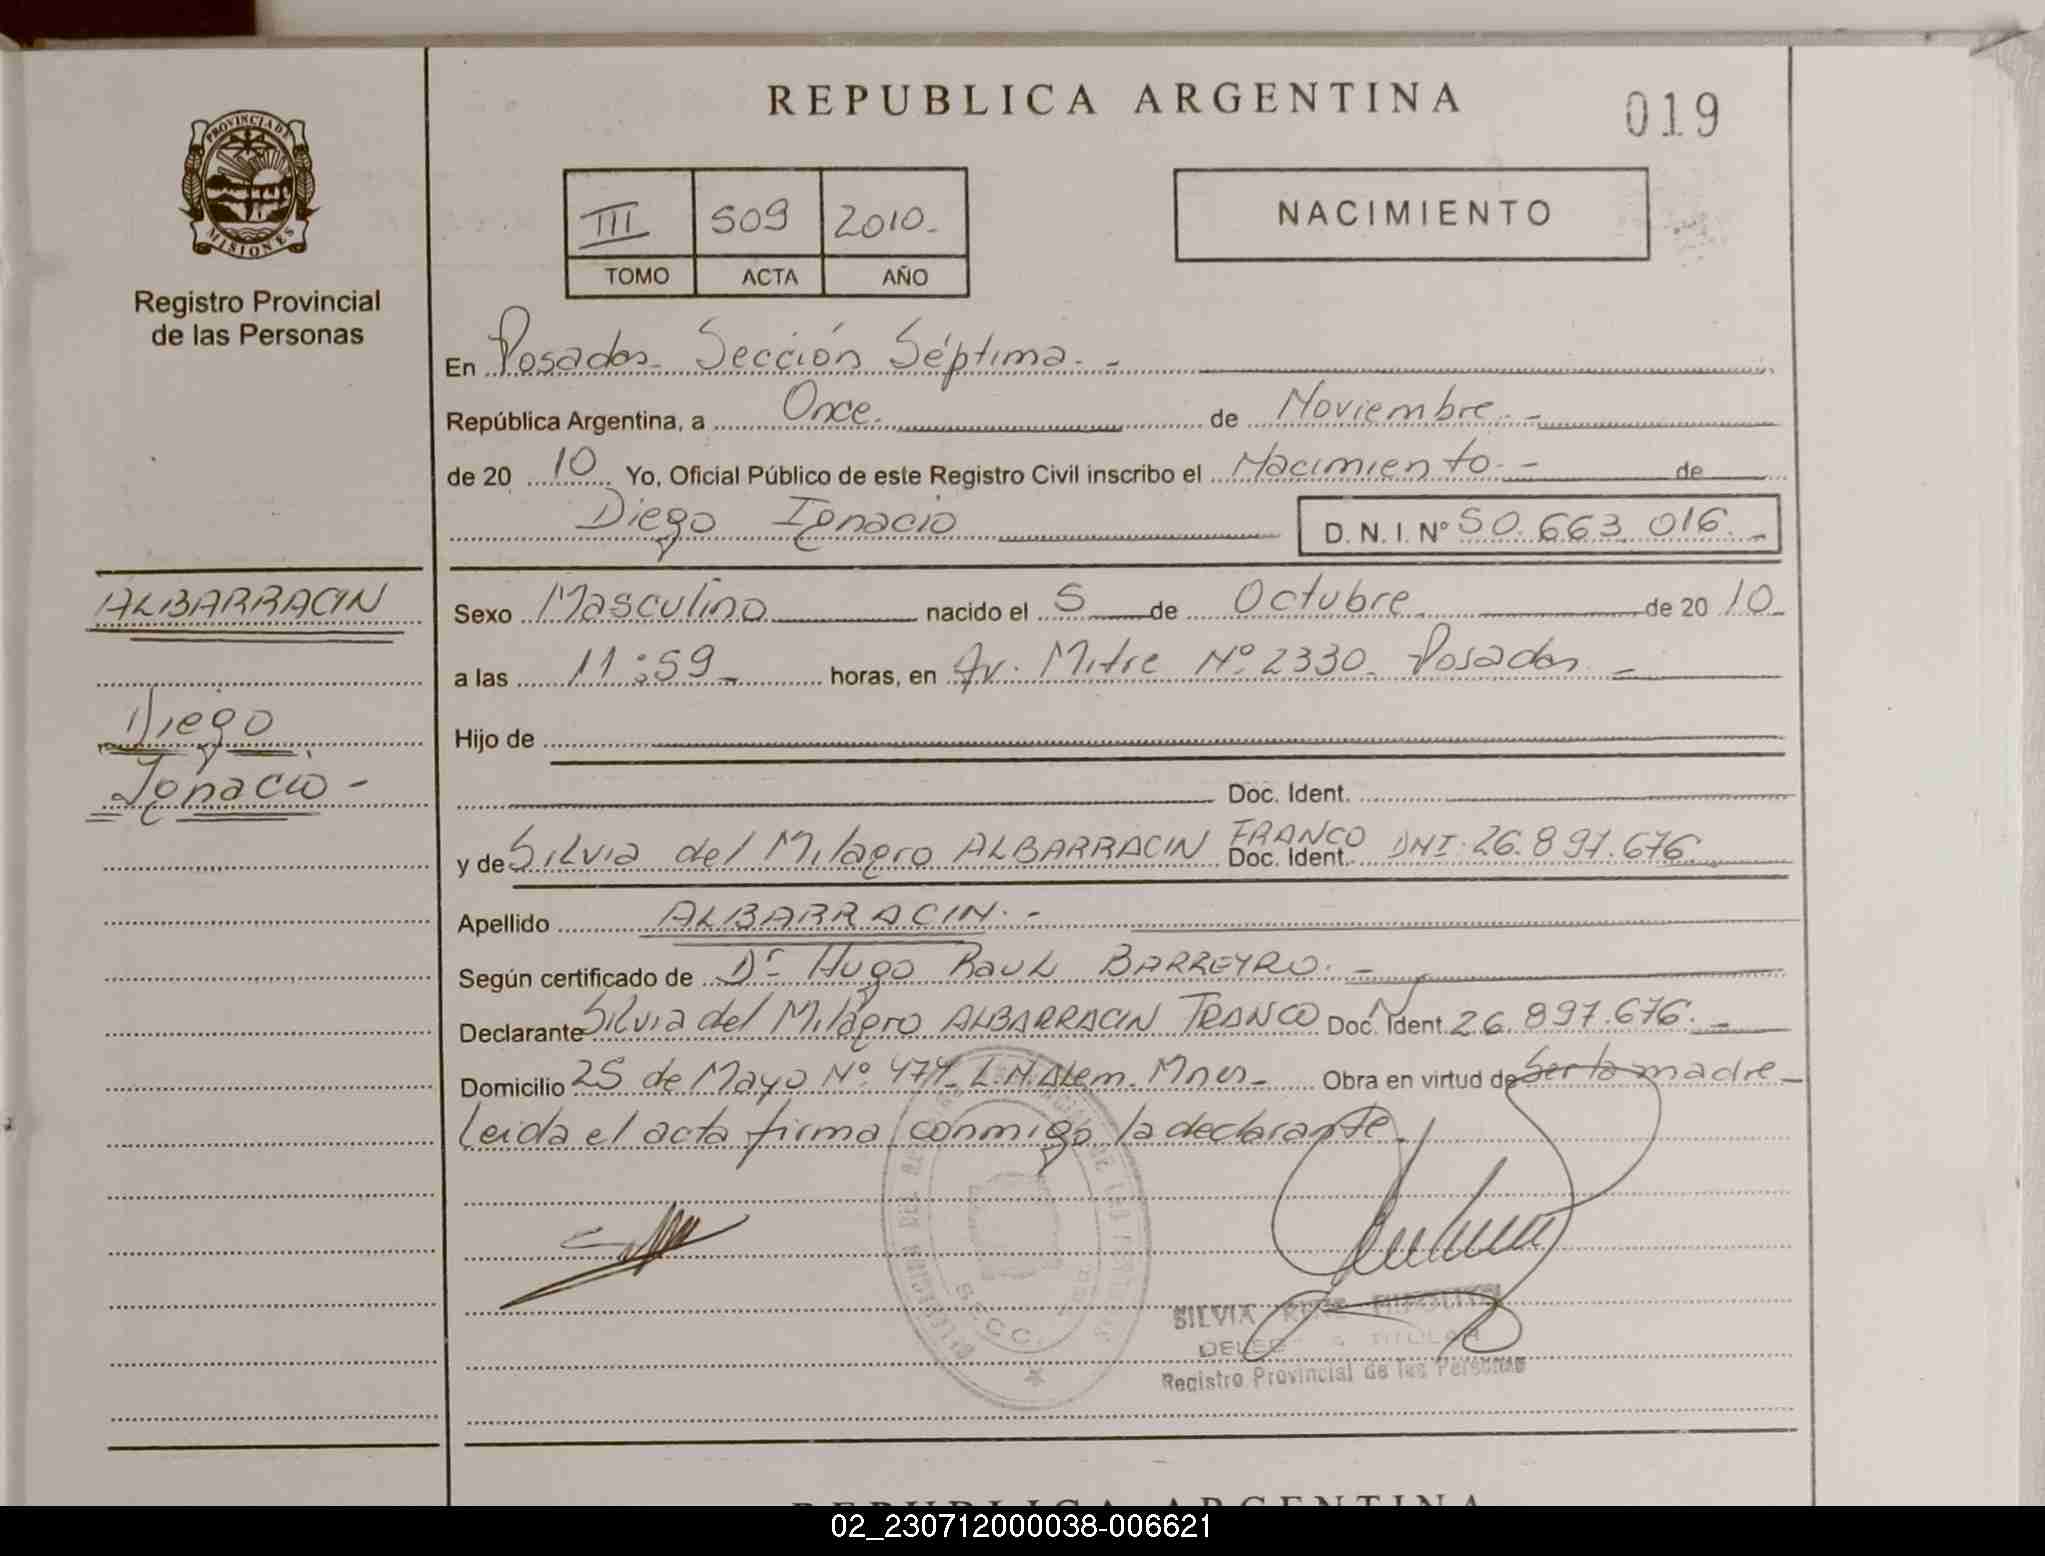 REPUBLICA ARGENTINA
019
PROVINCIA DE
MISIONES
Registro Provincial
de las Personas
III 509 2010.-
TOMO ACTA AÑO
NACIMIENTO
En Posadas- Sección Séptima.-
República Argentina, a Once. de Noviembre.-
de 20 10 Yo, Oficial Público de este Registro Civil inscribo el Nacimiento.- de
Diego Ignacio D. N. I. N° 50.663.016.-
ALBARRACIN
Diego
Ignacio-
Sexo Masculino nacido el 5 de Octubre de 20 10
a las 11:59- horas, en Av. Mitre Nº 2330- Posadas.-
Hijo de
Doc. Ident.
y de Silvia del Milagro ALBARRACIN FRANCO Doc. Ident. DNI. 26.897.676
Apellido ALBARRACIN.-
Según certificado de Dr. Hugo Raul BARREYRO.-
Declarante Silvia del Milagro ALBARRACIN FRANCO Doc. Ident. 26.897.676.-
Domicilio 25 de Mayo Nº 474- L.N.Alem. Mnes- Obra en virtud de Ser la madre-
Leida el acta firma conmigo la declarante.
SECC.
SILVIA
Registro Provincial de las Personas
REPUBLICA ARGENTINA
02_230712000038-006621